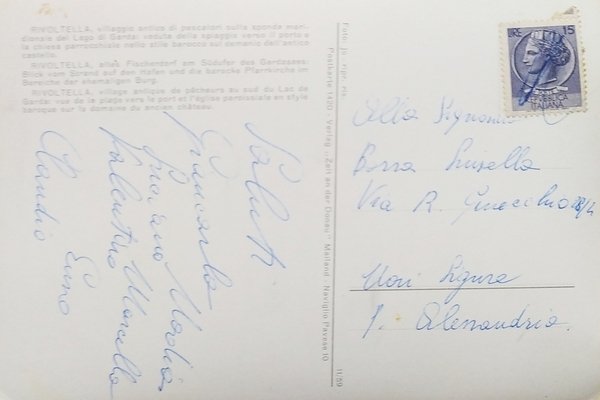 RIVOLTELLA, villaggio antico di pescatori sulla sponda meri-
dionale del Lago di Garda: veduta della spiaggia verso il porto e
la chiesa parrocchiale nello stile barocco sul demanio dell'antico
castello.
RIVOLTELLA, altes Fischerdorf am Südufer des Gardasees:
Blick vom Strand auf den Hafen und die barocke Pfarrkirche im
Bereiche der ehemaligen Burg.
RIVOLTELLA, village antique de pêcheurs au sud du Lac de
Garda: vue de la plage vers le port et l'église paroissiale en style
baroque sur le domaine du ancien château.
Saluti
Giancarlo
Graziano Marilia
Valentina Marcella
Claudio Enno
Foto:
Postkarte 1420 - Verlag „Zeit an der Donau" Mailand - Naviglio Pavese 10
11/59
LIRE 15
ITALIANA
Alla Signorina
Luisella
Via R.
28/2
Novi Ligure
p. Alessandria.